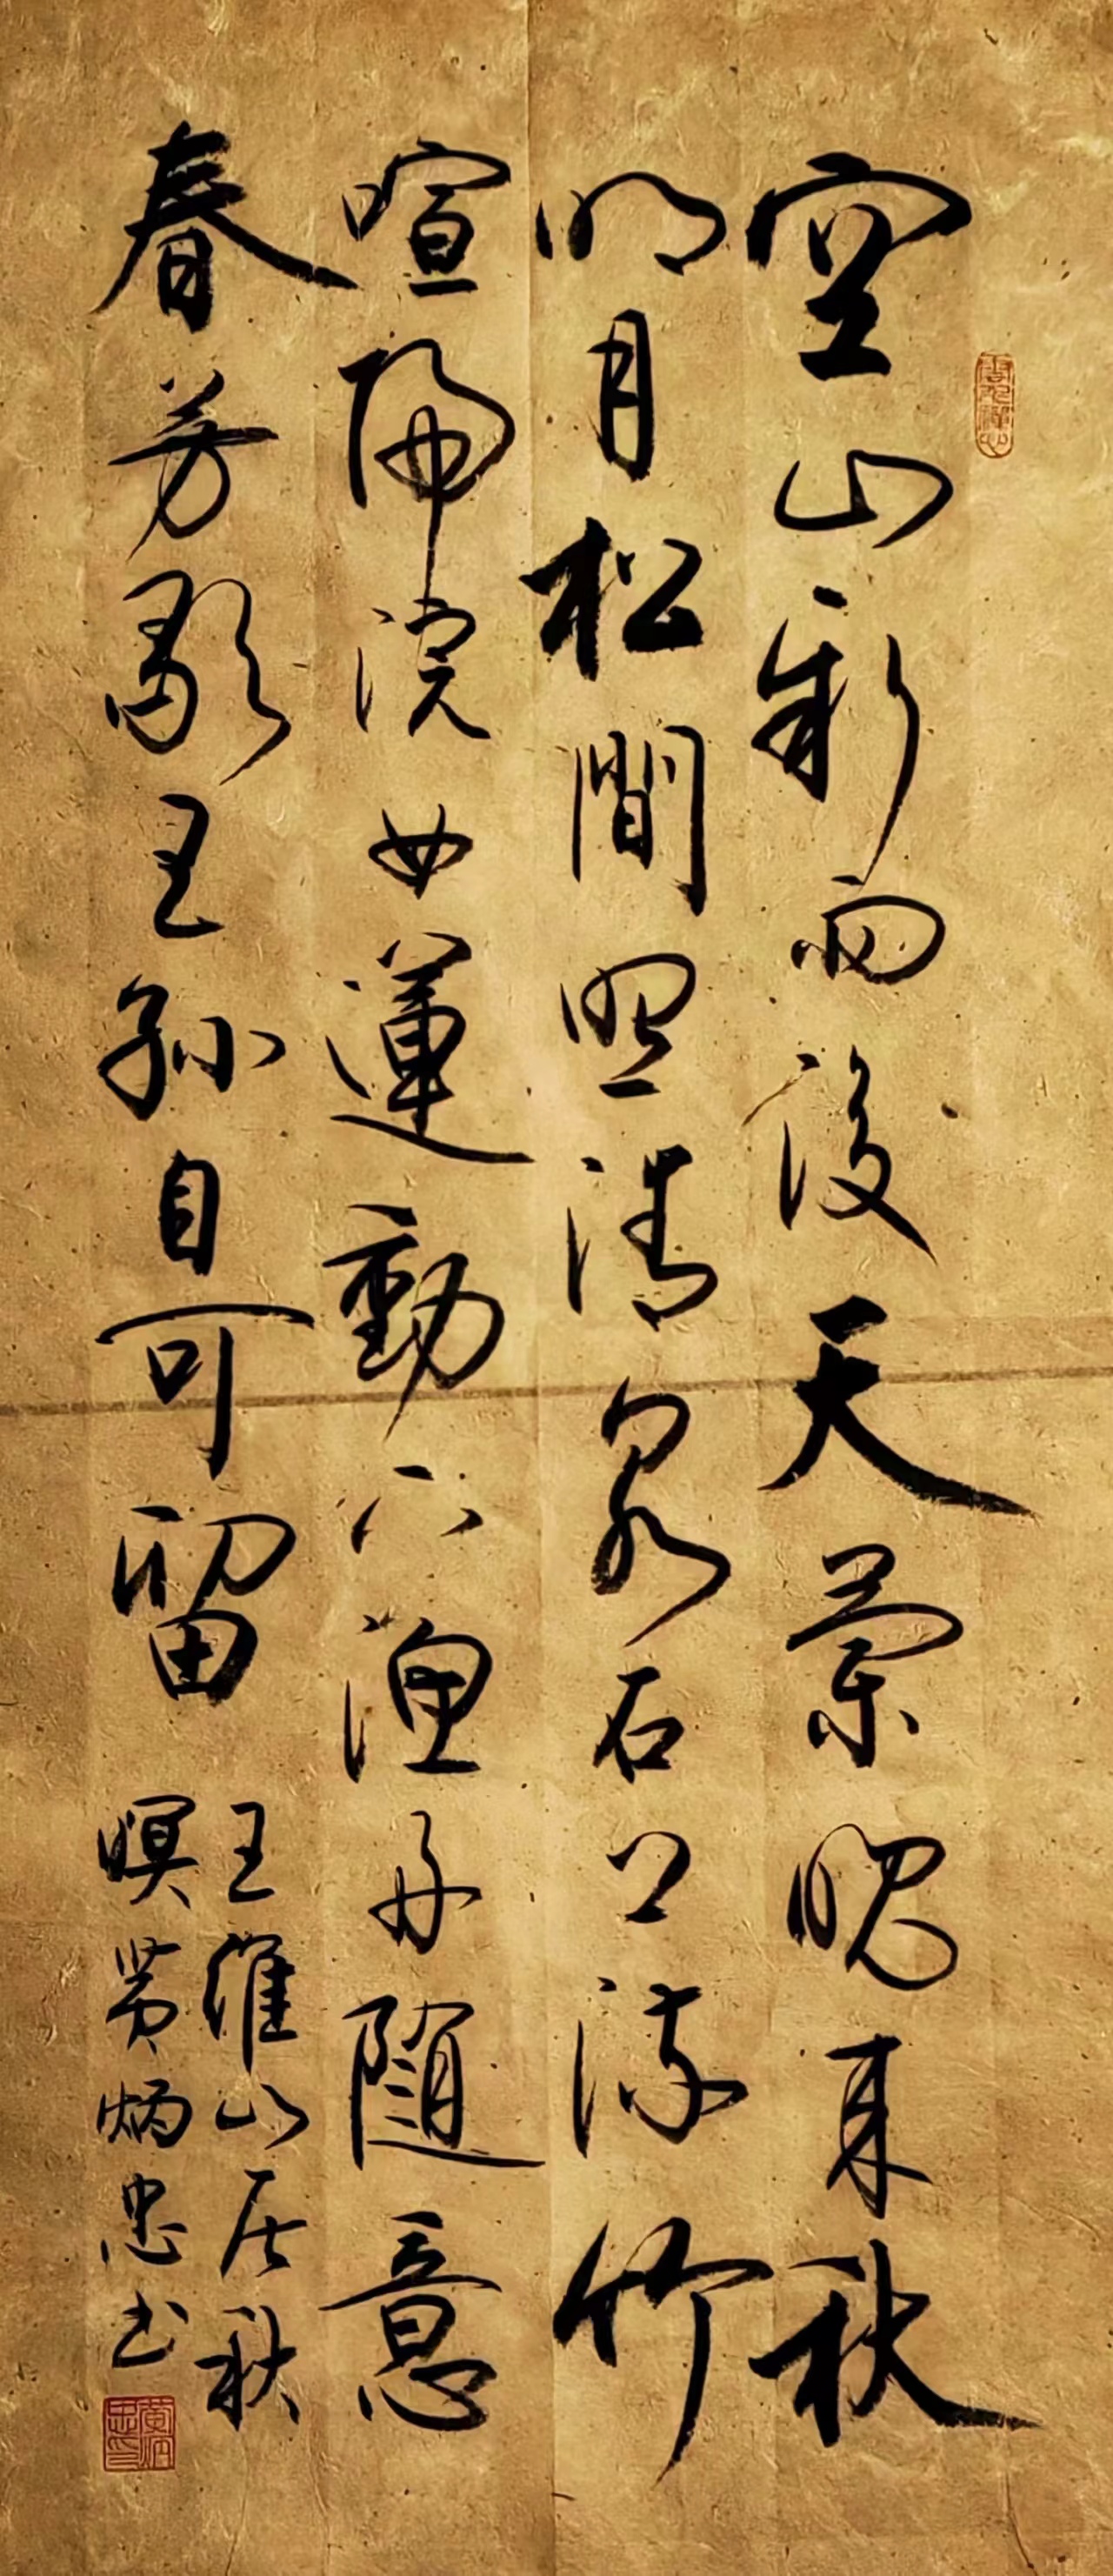 雲水禪心
空山新雨後天氣晚来秋
明月松間照清泉石上流竹
喧歸浣女蓮動下漁舟隨意
春芳歇王孫自可留
王維山居秋
暝黄炳忠书
黄炳忠印